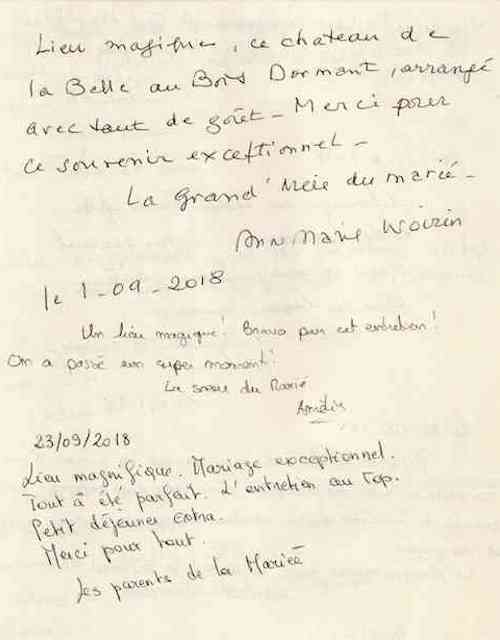 Lieu magique, ce chateau de
la Belle au Bois Dormant, arrangé
avec tant de goût - Merci pour
ce souvenir exceptionnel -
La Grand' Mère du marié -
Ann Marie Woirin
le 1-09-2018
Un lieu magique! Bravo pour cet entretien!
On a passé un super moment!
La soeur du Marié
23/09/2018
Lieu magnifique. Mariage exceptionnel.
Tout à été parfait. L'entretien au Top.
Petit déjeuner extra.
Merci pour tout.
Les parents de la Mariée